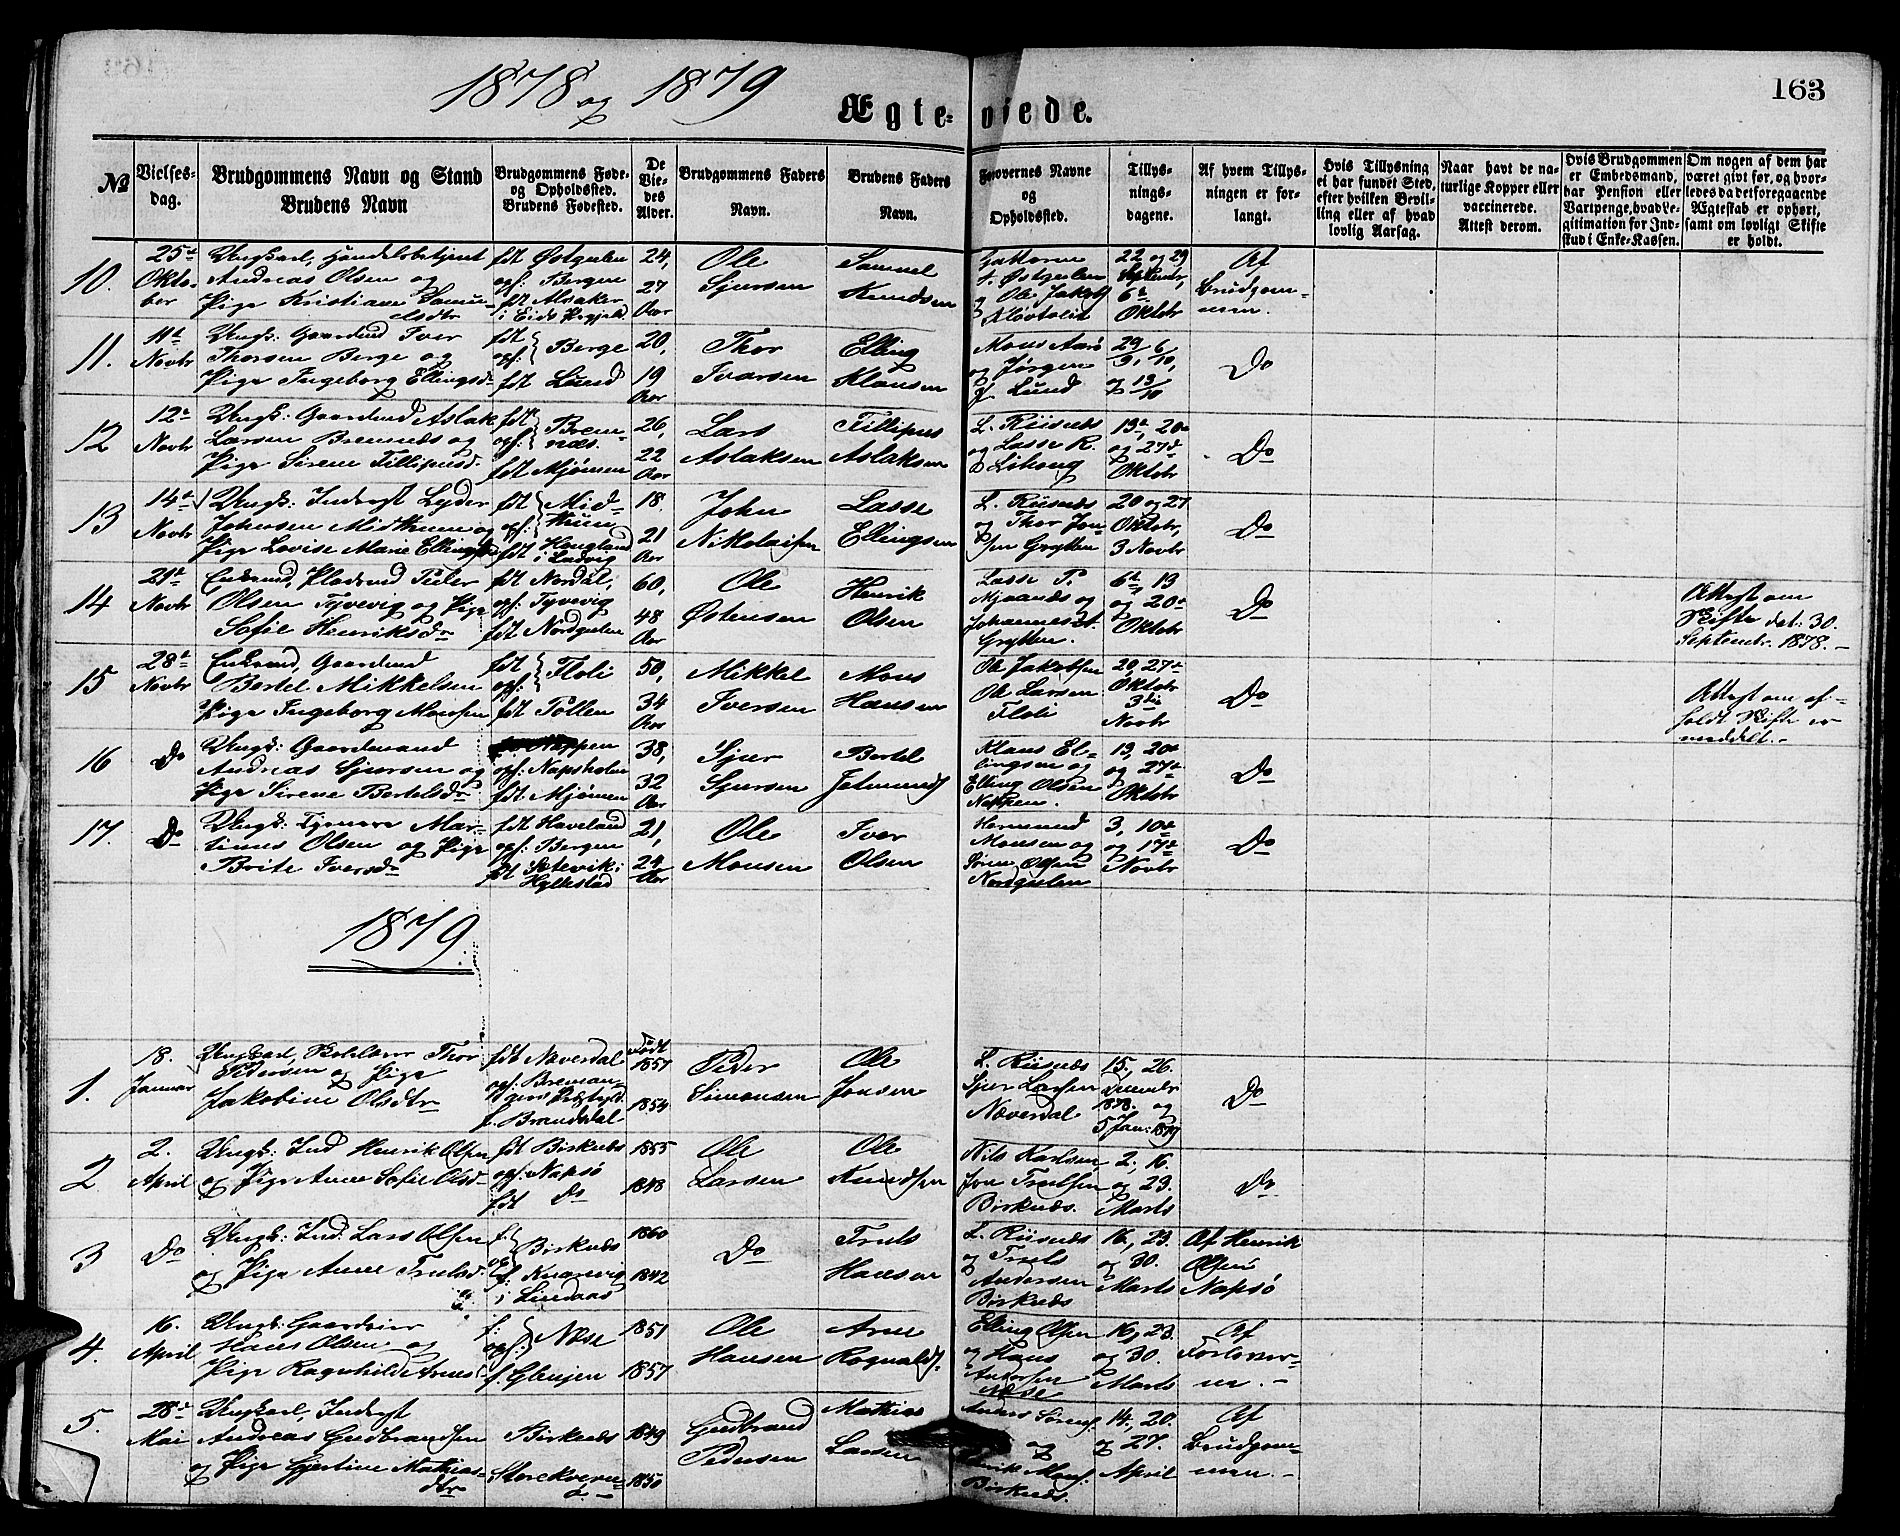 1878 og 1879
Ægteviede.
163
No
Vielses-
dag.
Brudgommens Navn og Stand
Brudens Navn
Brudgommens Føde-
og Opholdssted.
Brudens Fødested.
De
Vie-
des
Alder.
Brudgommens Faders
Navn.
Brudens Faders
Navn.
Forlovernes Navne
og
Opholdssted.
Tillys-
nings-
dagene.
Af hvem Tillys-
ningen er for-
langt.
Hvis Tillysning
ei har fundet Sted,
efter hvilken Bevil-
ling eller af hvad
lovlig Aarsag.
Naar havt de na-
turlige Kopper eller
vaccinerede.
Attest derom.
Hvis Brudgommen
er Embedsmand,
har Pension eller
Vartpenge, hvad Le-
gitimation for Ind-
skud i Enke-Kassen.
Om nogen af dem har
været givt før, og hvor-
ledes da det foregaaende
Ægteskab er ophørt,
samt om lovligt Skifte
er holdt.
10.
25de
Okto-
ber
Ungkarl, Handelsbetjent
Andreas Olsen og
Pige Kristiane Samue-
elsdtr
fdt Østgulen
opf: Bergen
fdt Alsaker
i Eids Prgjeld
24,
27
Aar
Ole
Sjursen
Samuel
Knudsen
Østgulen
og Ole Jakobs
Kløvtveit
22 og 29
Septembr,
6te
Oktobr
Af
Brudgom-
men.
11.
11te
Novbr
Ungk: Gaardmd Iver
Thorsen Berge og
Pige Ingeborg Ellingsd.
fdt
opf: } Berge
fdt Lund
20,
19
Aar
Thor
Ivarsen
Elling
Klausen
Mons Aarø
og Jørgen
J. Lund
29/9, 6/10,
og 13/10
Do
12
12te
Novbr
Ungk: Gaardmd Aslak
Larsen Bremnæs og
Pige Sirene Fillipusd.
fdt
opf: } Brem-
næs.
fdt Mjømen
26,
22
Aar
Lars
Aslaksen
Fillipus
Aslaksen
L. Riisnæs
og Lasse R.
13de, 20de
og 27de
Oktobr
Do
13
14de
Novbr
Ungk: Inderst Lyder
Johnsen Midthuun og
Pige Lovise Marie Ellingsd
fdt
opf: } Mid-
thun
fdt Haugland
i Ladvig
18.
21
Aar
John
Nikolaisen
Lasse
Ellingsen
L. Riisnæs
og Thor Jon-
sen Grytten
20 og 27
Oktobr,
3 Novbr
Do
14
21de
Novbr
Enkemd, Pladsmd Peder
Olsen Tyvevig og Pige
Sofie Henriksdr
fdt Nordal,
opf: Tyvevig
fdt Nordgulen
60,
48
Aar
Ole
Østensen
Henrik
Olsen
Lasse P.
Mjaanæs og
Johannes A.
Grytten.
6te, 13
og 20de
Oktobr
Do
Attest om
Skifte dat: 30.
Septembr. 1878. –
15
28de
Novbr
Enkemd, Gaardmd
Bertel Mikkelsen
Pige Ingeborg Monsen
fdt
opf: } Floli
fdt Tollen
50,
34
Aar
Mikkel
Iversen
Mons
Hansen
Ole Jakobsen
Ole Larsen
Floli
20, 27de
Oktobr
3die
Novbr
Do
Attest om af-
holdt Skifte er
meddelt. –
16
Do
Ungk: Gaardmand
Andreas Sjursen og
Pige Sirene Bertelsdr
Nappen
opf: Napsholm
fdt Mjømen
38,
32
Aar
Sjur
Sjursen
Bertel
Klaus El-
lingsen og
Elling Olsen
Nappen.
13, 20de
og 27de
Oktobr
Do
17.
Do
Ungk: Tjener Mar-
tinus Olsen og Pige
Brite Iversdr
fdt Haveland
opf: Bergen
fdt Setevik i
Hyllestad
21,
24
Aar
Ole
Monsen
Iver
Olsen
Hermund
Monsen og
Søren Olsen
Nordgulen
3, 10de
og 17de
Novbr
Do
1879.
1.
18.
Januar
Ungkarl, Skolelærer Thor
Pedersen og Pige
Jakobine Olsdtr
fdt Naverdal
opf: Breman-
gers Præstgjld
f. Brandsdal
Født
1851
1854
Peder
Simonsen
Ole
Jonsen
L. Riisnæs
Sjur Larsen
Næverdal
15. 26.
Decembr
1878. og
5 Jan: 1879
Do
2.
2.
April
Ungk: Ind Henrik Olsen
og Pige Anne Sofie Olsd.
fdt Birknæs
opf: Napsø
fdt Do
1855
1848
Ole
Larsen
Ole
Knudsen
Nils Karlsen
Jon Trulsen
Birknæs.
2, 16.
og 23.
Marts
Do
3
Do
Ungk: Ind. Lars Olsen
og Pige Anne Trulsd.
f:
op: } Birknæs
f: Knarevig
i Lindaas
1860
1842
Do
Truls
Hansen
L. Riisnæs
og Truls
Andersen
Birknæs
16, 23.
og 30.
Marts
Af Henrik
Olsen
Napsø
4.
16.
April
Ungk: Gaardeier
Hans Olsen og
Pige Ragnhilde Arnesd
f:
opf: } Næse
f. Glenjen
1851
1857
Ole
Hansen
Arne
Rognalds.
Elling Olsen
og Hans
Andersen
Næse
16, 23.
og 30.
Marts
Af
Forlover-
ne. –
5.
28de
Mai
Ungkarl, Inderst
Andreas Gudbrandsen
og Pige Gjertine Mathias-
dtr
Birknæs
1849
1850
Gudbrand
Pedersen
Mathias
Larsen
Anders Søren
og
Birknæs.
14, 20.
og 27.
April
Af
Brudgom-
men. –